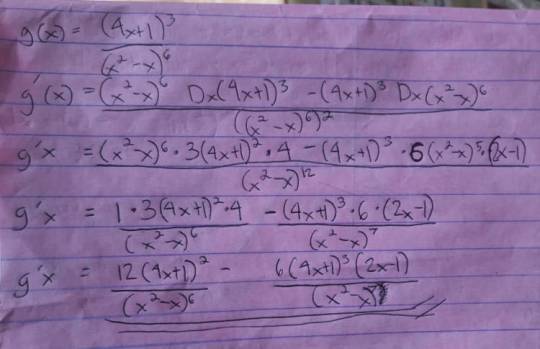 g(x) = (4x+1)³ / (x²-x)⁶
g'(x) = (x²-x)⁶ Dx(4x+1)³ - (4x+1)³ Dx(x²-x)⁶ / ((x²-x)⁶)²
g'x = (x²-x)⁶ · 3(4x+1)² · 4 - (4x+1)³ · 6(x²-x)⁵ · (2x-1) / (x²-x)¹²
g'x = 1 · 3(4x+1)² · 4 / (x²-x)⁶ - (4x+1)³ · 6 · (2x-1) / (x²-x)⁷
g'x = 12(4x+1)² / (x²-x)⁶ - 6(4x+1)³(2x-1) / (x²-x)⁷